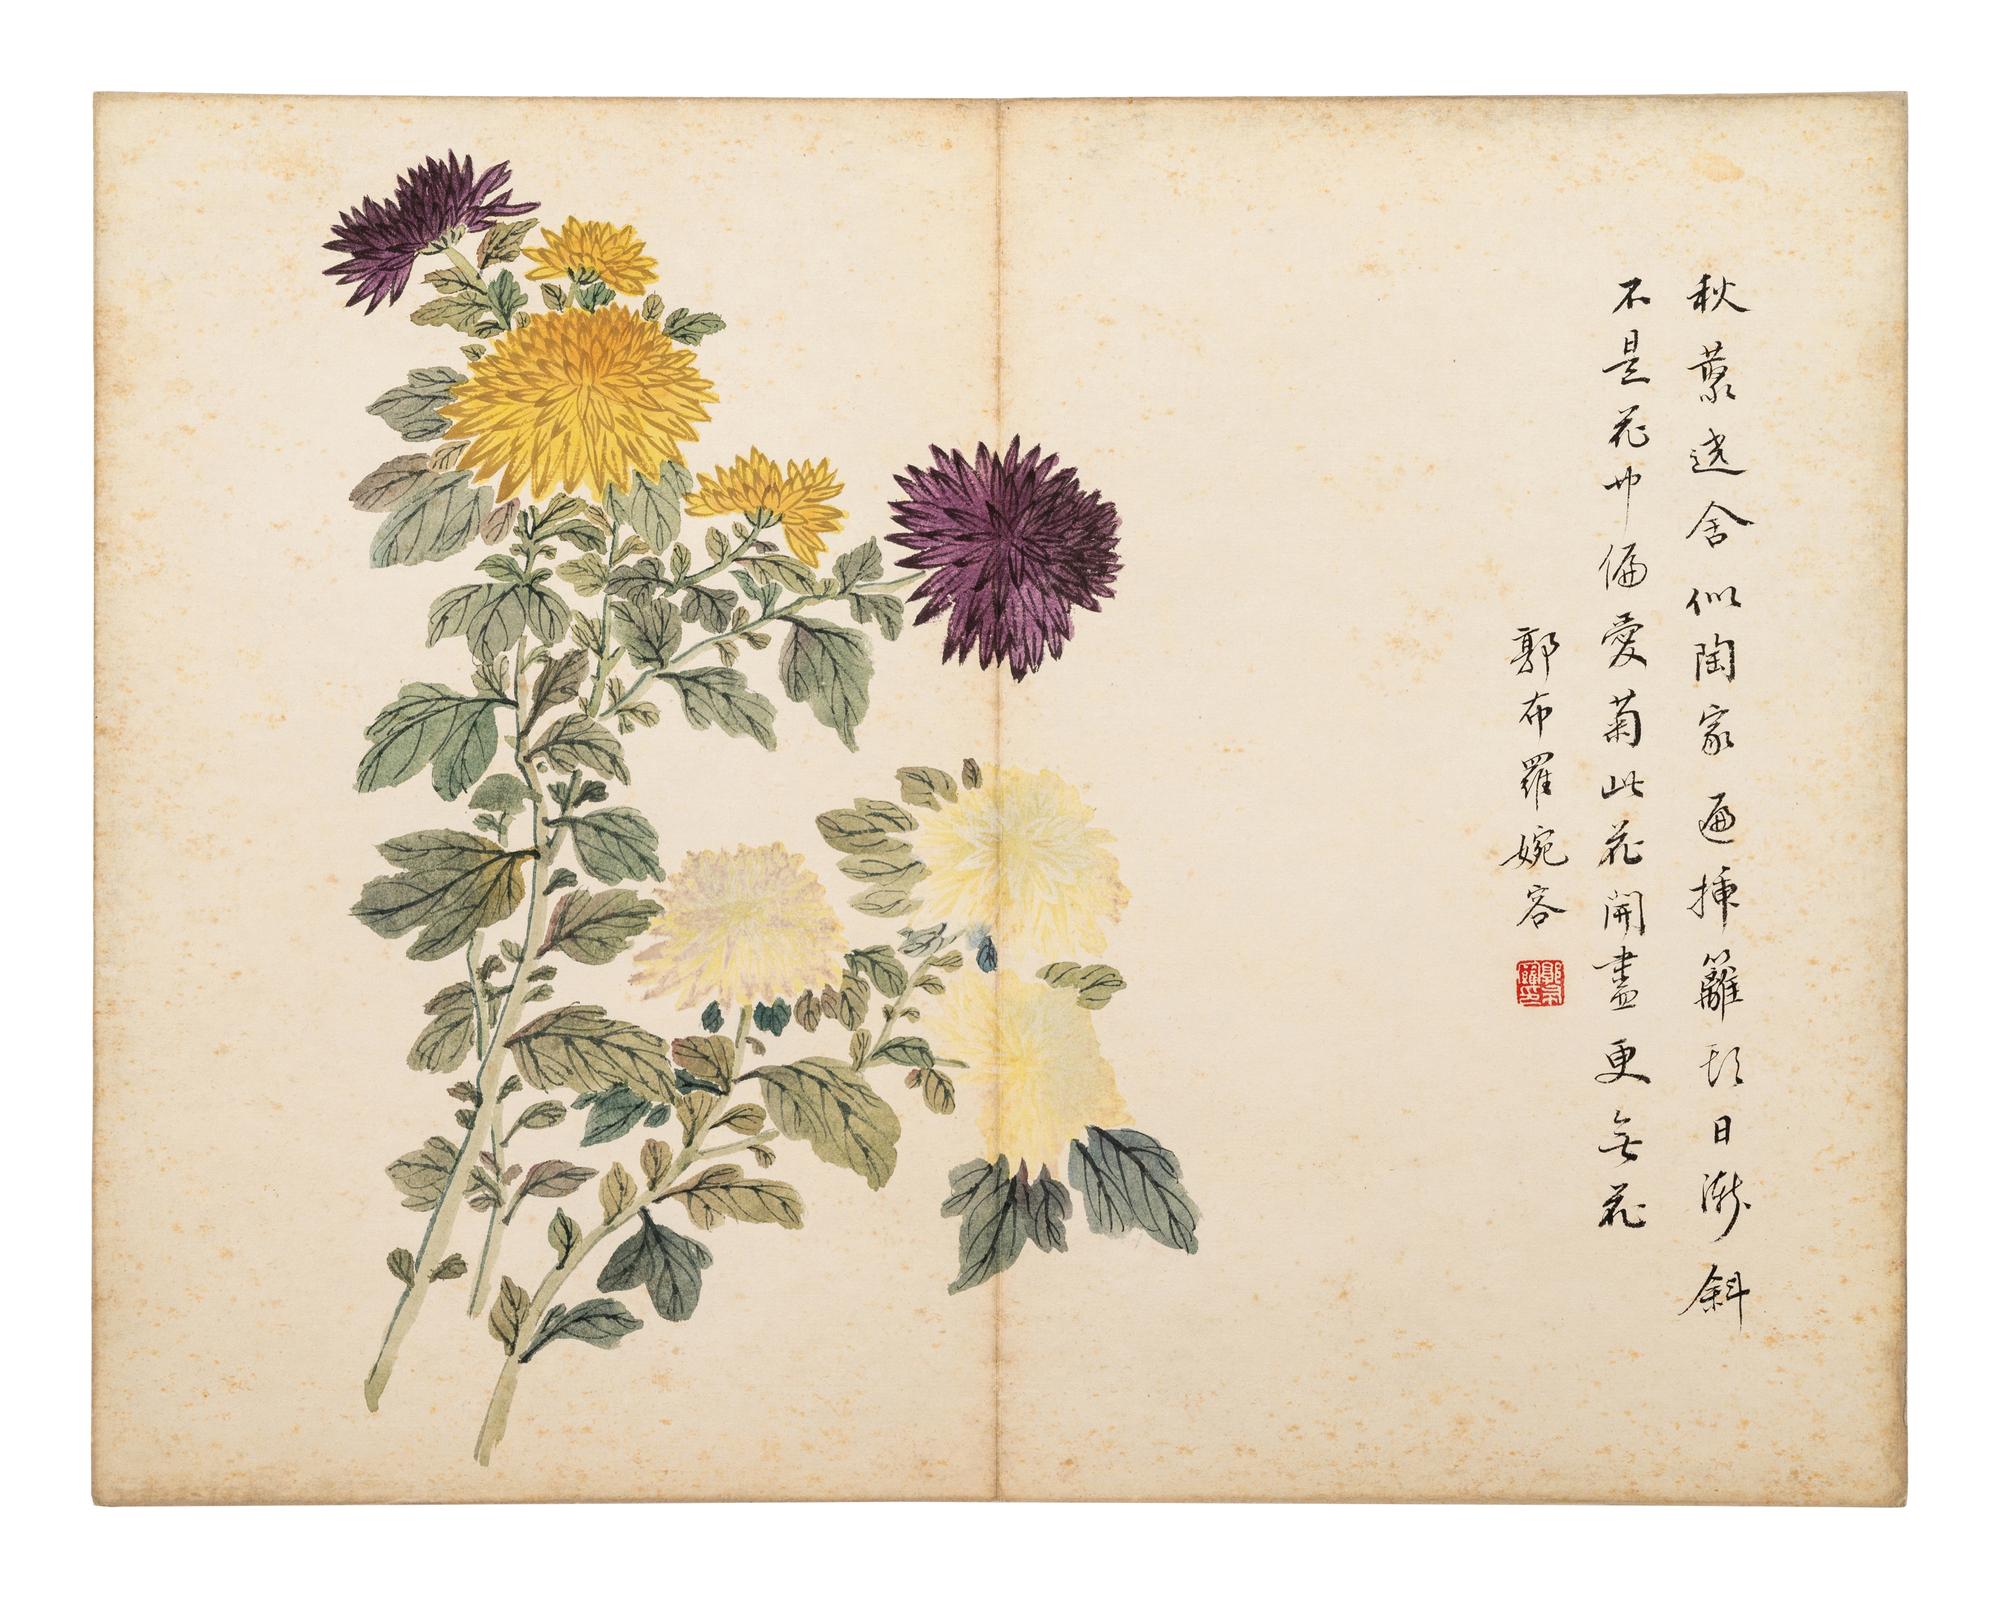 秋叢遶舍似陶家遍挿籬頭日漸斜
不是花中偏愛菊此花開盡更無花
郭布羅婉容
郭布羅印